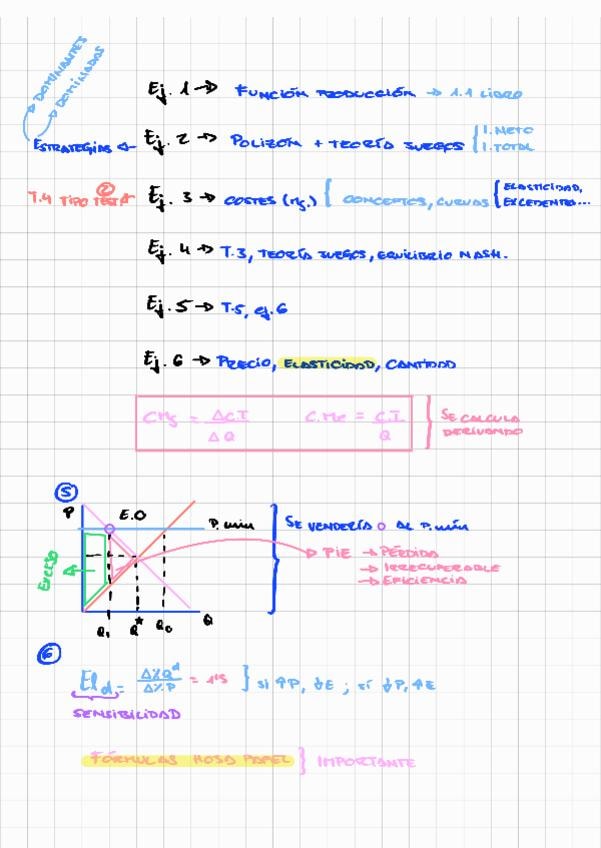 DOMINANTES
DOMINADAS
Ej. 1 → FUNCIÓN PRODUCCIÓN → 1.1 LIBRO
ESTRATEGIAS ← Ej. 2 → POLIZÓN + TEORÍA JUEGOS { I. NETO
I. TOTAL
T.4 TIPO TEST ② ← Ej. 3 → COSTES (Mg.) { CONCEPTOS, CURVAS { ELASTICIDAD,
EXCEDENTES...
Ej. 4 → T.3, TEORÍA JUEGOS, EQUILIBRIO NASH.
Ej. 5 → T.5, ej. 6
Ej. 6 → PRECIO, ELASTICIDAD, CANTIDAD
CMg = ΔC.T / ΔQ C.Me = C.T / Q } SE CALCULA
DERIVANDO
⑤
P E.O P. min } SE VENDERÍA O AL P. MÍN
EXCESO
→ PIE → PÉRDIDA
→ IRRECUPERABLE
→ EFICIENCIA
Q₁ Q* Q₀ Q
⑥
El d = Δ%Qᵈ / Δ%P = 1'5 } si ↑P, ↓E ; si ↓P, ↑E
SENSIBILIDAD
FÓRMULAS HOJA PAPEL } IMPORTANTE